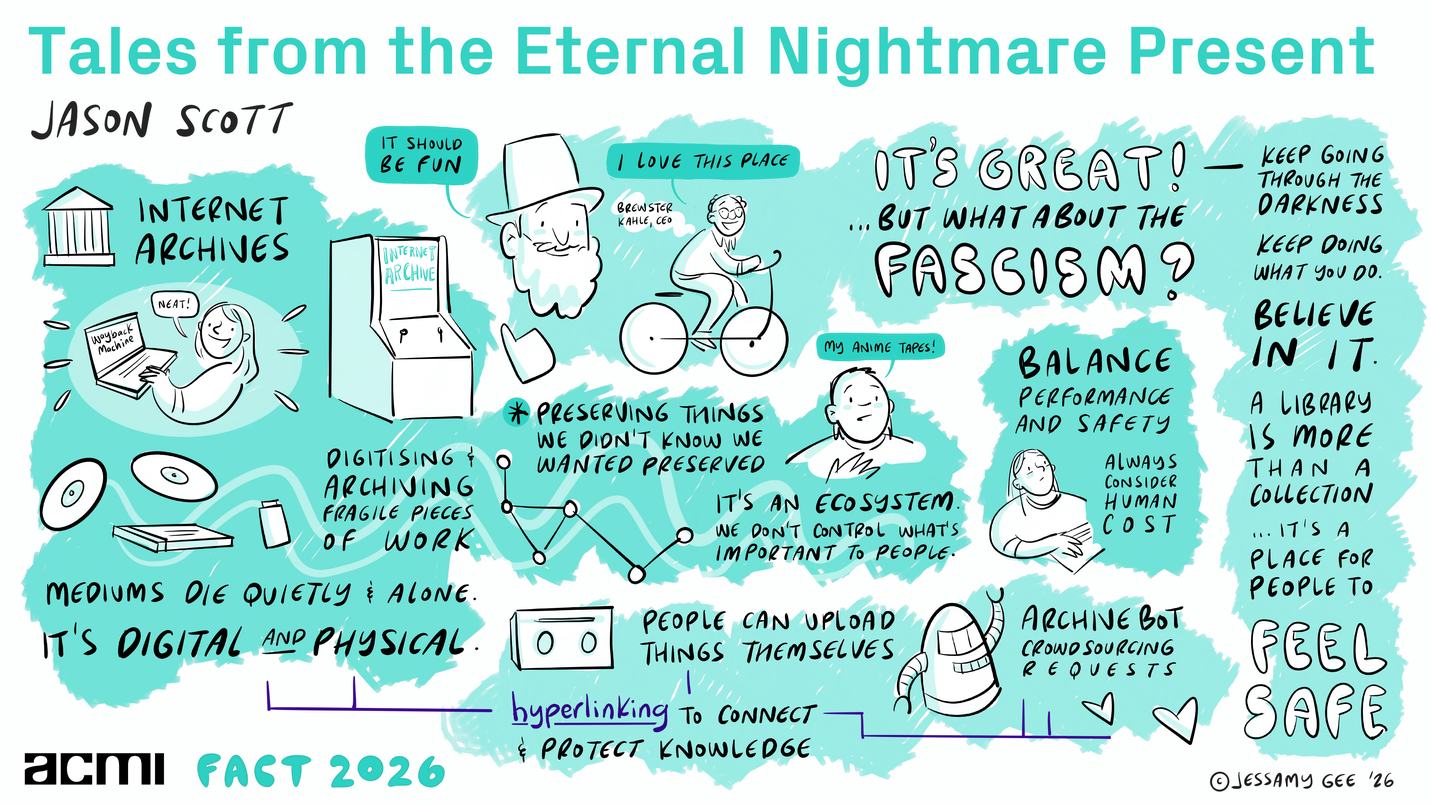 Tales from the Eternal Nightmare Present
JASON SCOTT
INTERNET
ARCHIVES
NEAT!
Wayback
Machine
INTERNET
ARCHIVE
IT SHOULD
BE FUN
I LOVE THIS PLACE
BREWSTER
KAHLE, CEO
IT'S GREAT!
...BUT WHAT ABOUT THE
FASCISM?
DIGITISING &
ARCHIVING
FRAGILE PIECES
OF WORK
MEDIUMS DIE QUIETLY & ALONE.
IT'S DIGITAL AND PHYSICAL.
* PRESERVING THINGS
WE DIDN'T KNOW WE
WANTED PRESERVED
MY ANIME TAPES!
IT'S AN ECOSYSTEM.
WE DON'T CONTROL WHAT'S
IMPORTANT TO PEOPLE.
BALANCE
PERFORMANCE
AND SAFETY
ALWAYS
CONSIDER
HUMAN
COST
PEOPLE CAN UPLOAD
THINGS THEMSELVES
ARCHIVE BOT
CROWDSOURCING
REQUESTS
hyperlinking TO CONNECT
& PROTECT KNOWLEDGE
KEEP GOING
THROUGH THE
DARKNESS
KEEP DOING
WHAT YOU DO.
BELIEVE
IN IT.
A LIBRARY
IS MORE
THAN A
COLLECTION
...IT'S A
PLACE FOR
PEOPLE TO
FEEL
SAFE
acmi FACT 2026
© JESSAMY GEE '26